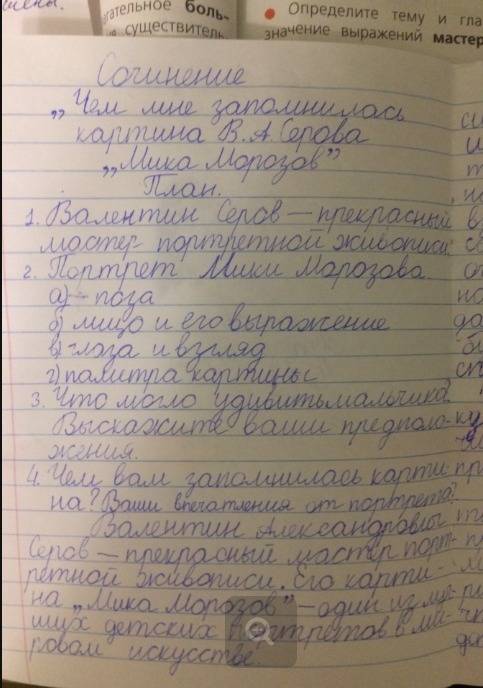 шены.
гательное боль-
существитель
Определите тему и гла
значение выражений мастер
Сочинение
„Чем мне запомнилась
картина В.А.Серова
„Мика Морозов”
План.
1. Валентин Серов – прекрасный
мастер портретной живописи.
2. Портрет Мики Морозова
а) – поза
б) лицо и его выражение
в) глаза и взгляд
г) палитра картины
3. Что могло удивить мальчика?
Выскажите ваши предполо-
жения.
4. Чем вам запомнилась карти
на? Ваши впечатления от портрета?
Валентин Александрович
Серов – прекрасный мастер порт-
ретной живописи. Его карти-
на „Мика Морозов” – один из лу-
ших детских портретов в ми-
ровом искусстве.